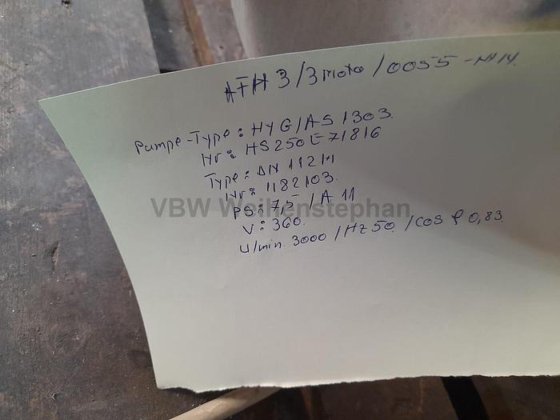 ATH 3/3 moto/0055-NH4
Pumpe-Type: HYG/AS 1303
Nr: HS250E71816
Type: DN 112M
Nr: 1182103.
PS: 7,5 / A 11
V: 360.
U/min 3000 / Hz 50. / cos φ 0,83
VBW Weihenstephan